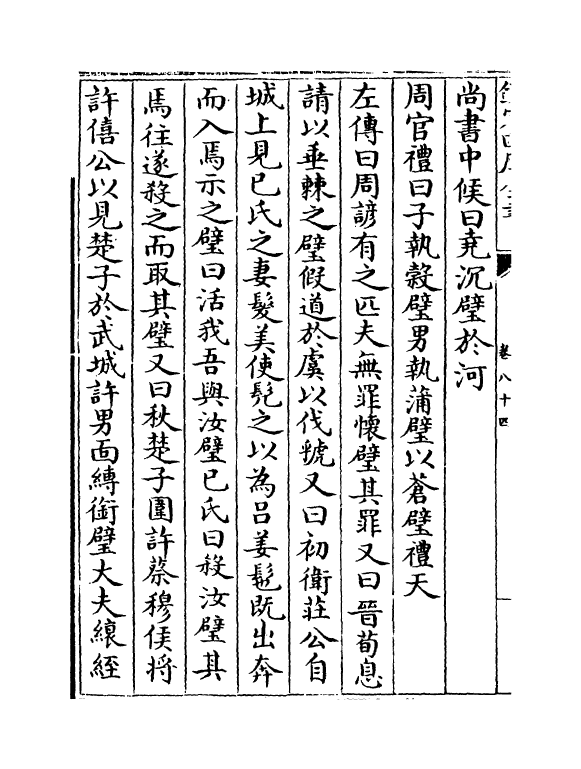 卷八十四
尚書中候曰堯沉璧於河
周官禮曰子執糓璧男執蒲璧以蒼璧禮天
左傳曰周諺有之匹夫無罪懷璧其罪又曰晉荀息
請以垂棘之璧假道於虞以伐虢又曰初衛莊公自
城上見已氏之妻髮美使髡之以為吕姜髢既出奔
而入焉示之璧曰活我吾與汝璧已氏曰殺汝璧其
焉往遂殺之而取其璧又曰秋楚子圍許蔡穆侯將
許僖公以見楚子於武城許男面縛銜璧大夫縗絰